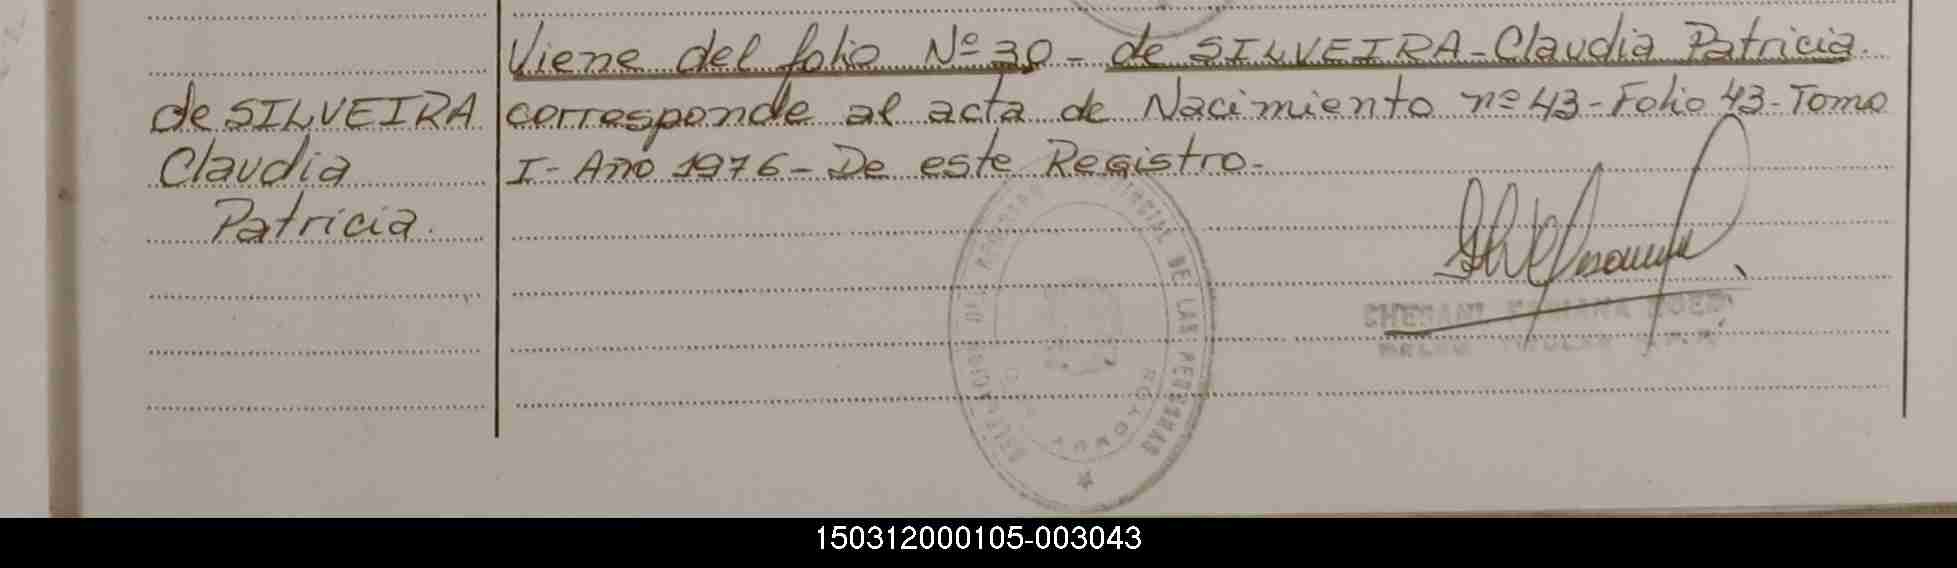 Viene del folio Nº 30 - de SILVEIRA - Claudia Patricia.
de SILVEIRA
Claudia
Patricia.
corresponde al acta de Nacimiento nº 43 - Folio 43 - Tomo
I - Año 1976 - De este Registro -
DE LAS PERSONAS
150312000105-003043